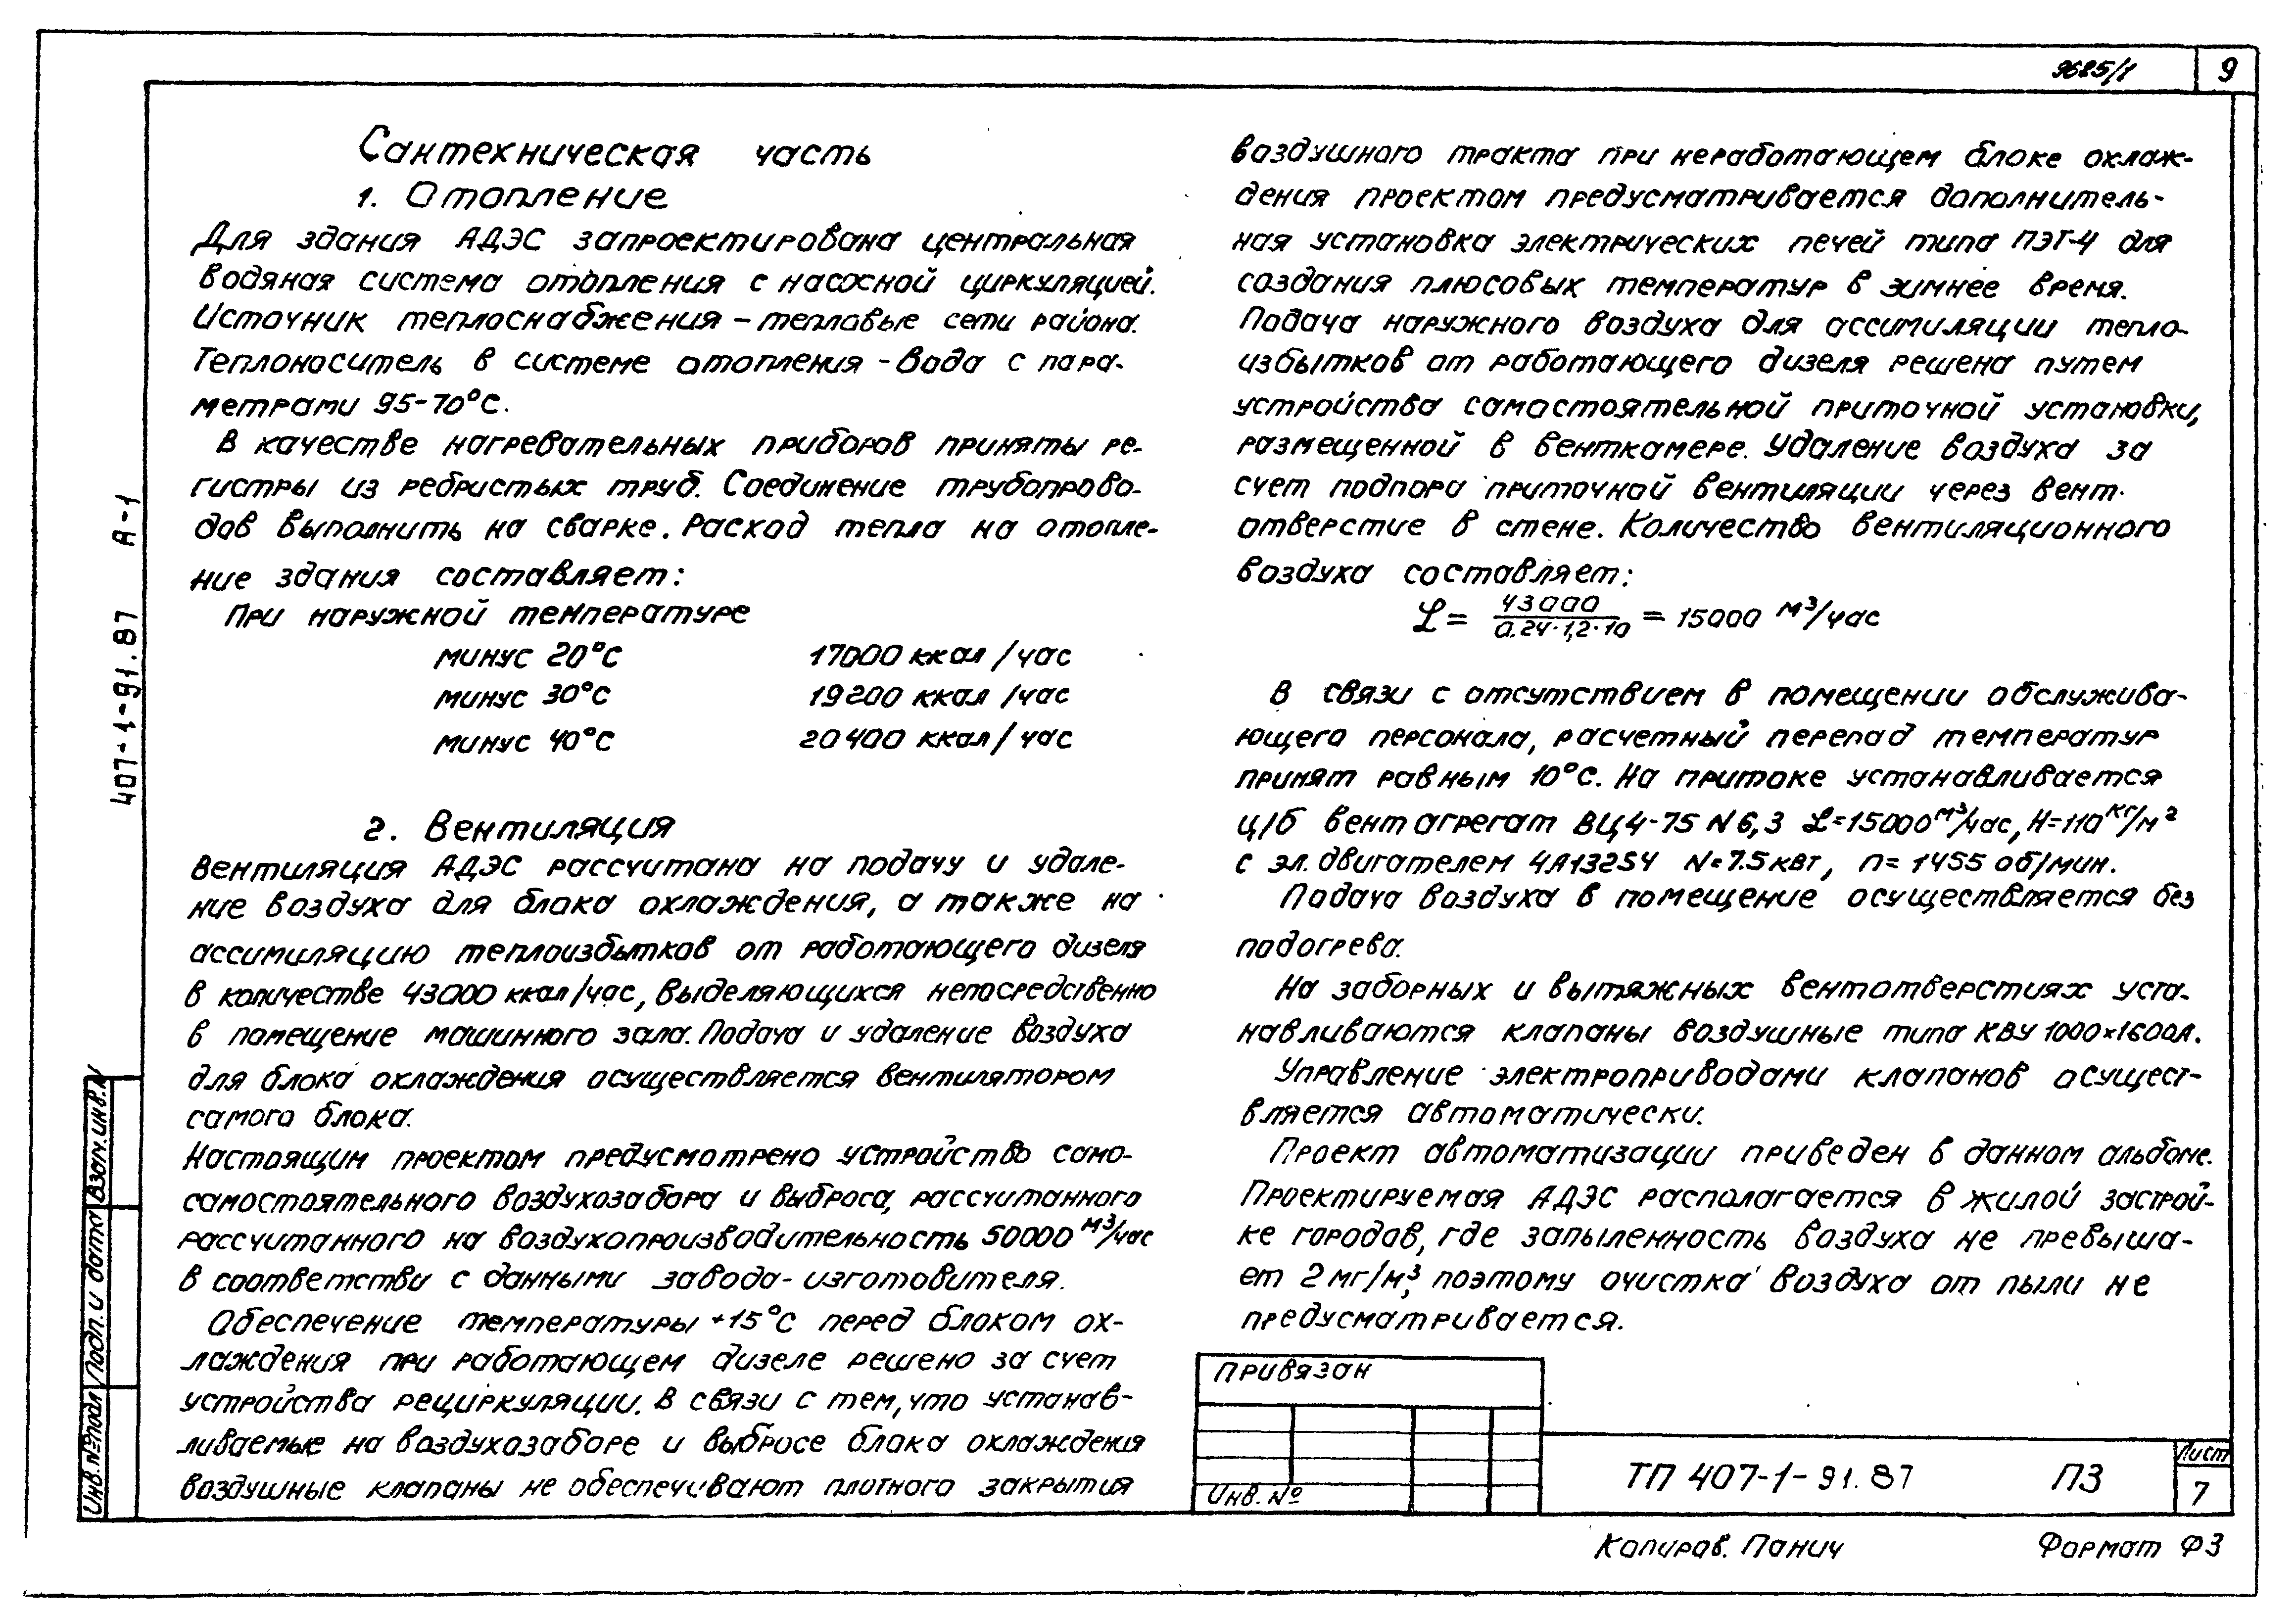 9625/1
9
Сантехническая часть
1. Отопление
Для здания АДЭС запроектирована центральная
водяная система отопления с насосной циркуляцией.
Источник теплоснабжения – тепловые сети района.
Теплоноситель в системе отопления – вода с пара-
метрами 95-70°С.
В качестве нагревательных приборов приняты ре-
гистры из ребристых труб. Соединение трубопрово-
дов выполнить на сварке. Расход тепла на отопле-
ние здания составляет:
При наружной температуре
минус 20°С 17000 ккал/час
минус 30°С 19200 ккал/час
минус 40°С 20400 ккал/час
2. Вентиляция
Вентиляция АДЭС рассчитана на подачу и удале-
ние воздуха для блока охлаждения, а также на
ассимиляцию теплоизбытков от работающего дизеля
в количестве 43000 ккал/час, выделяющихся непосредственно
в помещение машинного зала. Подача и удаление воздуха
для блока охлаждения осуществляется вентилятором
самого блока.
Настоящим проектом предусмотрено устройство само-
самостоятельного воздухозабора и выброса, рассчитанного
рассчитанного на воздухопроизводительность 50000 м³/час
в соответстви с данными завода-изготовителя.
Обеспечение температуры +15°С перед блоком ох-
лаждения при работающем дизеле решено за счет
устройства рециркуляции. В связи с тем, что устанав-
ливаемые на воздухозаборе и выбросе блока охлаждения
воздушные клапаны не обеспечивают плотного закрытия
воздушного тракта при неработающем блоке охлаж-
дения проектом предусматривается дополнитель-
ная установка электрических печей типа ПЭТ-4 для
создания плюсовых температур в зимнее время.
Подача наружного воздуха для ассимиляции тепло-
избытков от работающего дизеля решена путем
устройства самостоятельной приточной установки,
размещенной в венткамере. Удаление воздуха за
счет подпора приточной вентиляции через вент.
отверстие в стене. Количество вентиляционного
воздуха составляет:
L = 43000 / 0.24·1,2·10 = 15000 м³/час
В связи с отсутствием в помещении обслужива-
ющего персонала, расчетный перепад температур
принят равным 10°С. На притоке устанавливается
ц/б вентагрегат ВЦ4-75 N6,3 L=15000 м³/час, Н=110 кг/м²
с эл. двигателем 4А132S4 N=7.5 квт, n=1455 об/мин.
Подача воздуха в помещение осуществляется без
подогрева.
На заборных и вытяжных вентотверстиях уста-
навливаются клапаны воздушные типа КВУ 1000×1600А.
Управление электроприводами клапанов осущест-
вляется автоматически.
Проект автоматизации приведен в данном альбоме.
Проектируемая АДЭС располагается в жилой застрой-
ке городов, где запыленность воздуха не превыша-
ет 2 мг/м³, поэтому очистка воздуха от пыли не
предусматривается.
407-1-91.87 А-1
Взам. инв. N
Подп. и дата
Инв. № подл
Привязан
Инв. №
ТП 407-1-91.87 ПЗ
Лист
7
Копиров. Панич Формат Ф3